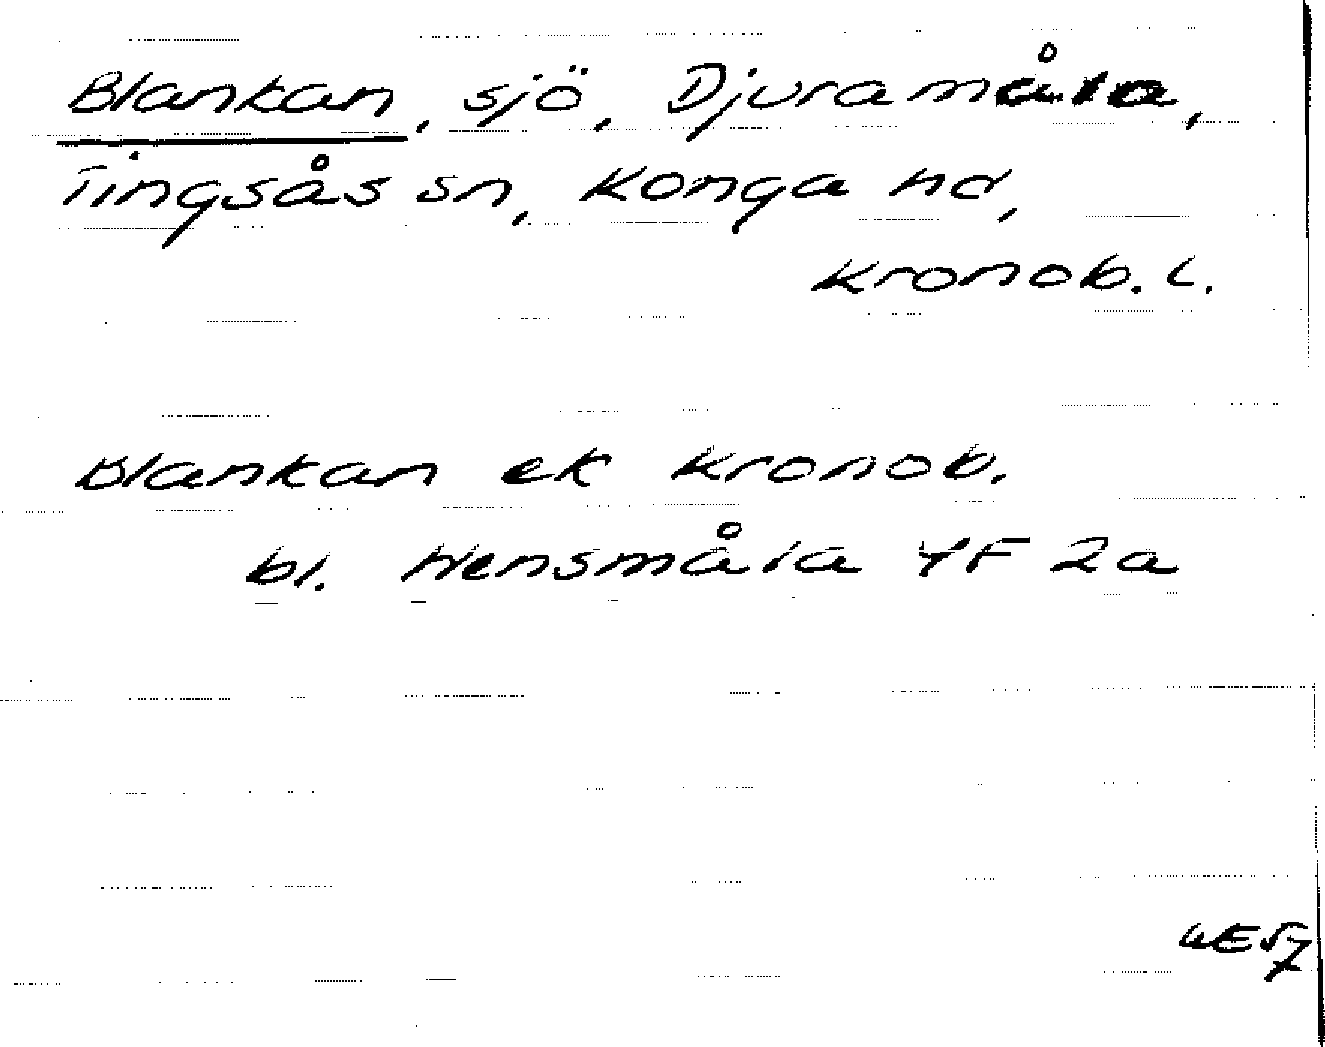 Blankan, sjö, Djuramåla,
Tingsås sn, Konga hd,
Kronob. l.
Blankan ek Kronob.
bl. Hensmåla 4F 2a